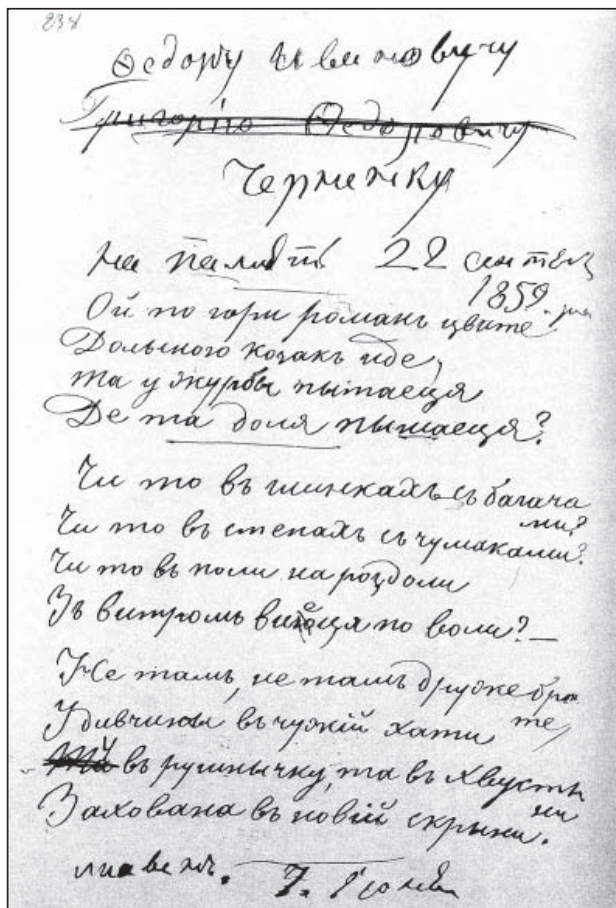 238
Ѳедору Ивановичу
Григорію Ѳедоровичу
Черненку
на память 22 сентяб
1859. року
Ой по гори романъ цвите
Долыною козакъ иде,
Та у журбы пытаеця
Де та доля пышаеця?
Чи то въ шинкахъ съ багача
ми?
Чи то въ степахъ съ чумаками?
Чи то въ поли на роздоли
Зъ витромъ виеця по воли? —
Не тамъ, не тамъ друже бра
те,
У дивчины въ чужій хати
въ рушнычку, та въ хвусты
ни
Захована въ новій скрыни.
7.